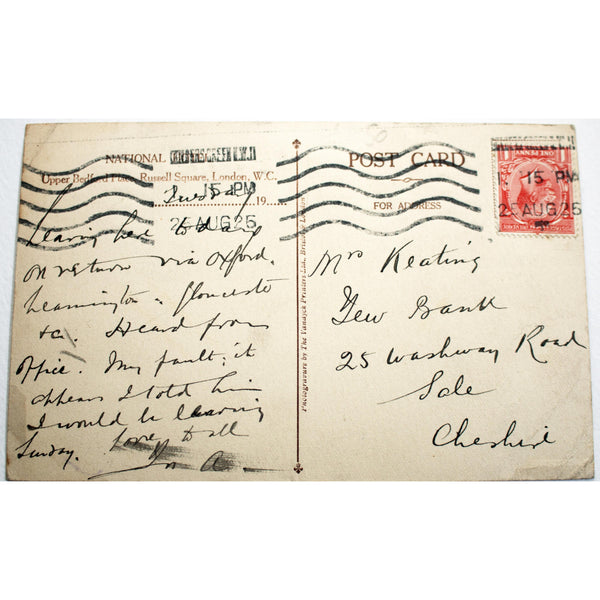 NATIONAL
Upper Bedford Place, Russell Square, London, W.C.
15 PM
25 AUG 25
Tuesday 19
Leaving here today
on return via Oxford,
Leamington, Gloucester
&c. Heard from
Office. My fault; it
appears I told him
I would be leaving
Sunday. Love to all
A.
Photogravure by The Vandyck Printers Ltd., Bristol & London
POST CARD
FOR ADDRESS
15 PM
25 AUG 25
Mrs Keating
Yew Bank
25 Washway Road
Sale
Cheshire